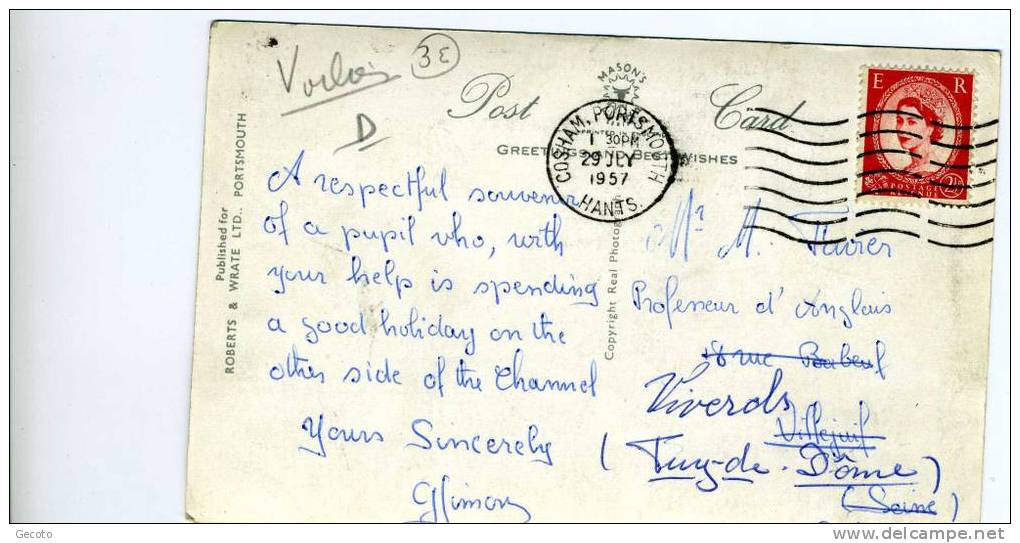 3E
D
Post Card
MASON'S
GREETINGS AND BEST WISHES
COSHAM, PORTSMOUTH
1 30PM
29 JLY
1957
HANTS.
E R
POSTAGE
2½
Published for
ROBERTS & WRATE LTD., PORTSMOUTH
A respectful souvenir
of a pupil who, with
your help is spending
a good holiday on the
other side of the Channel
Yours Sincerely
Copyright Real Photog
Mr M.
Professeur d'Anglais
8 rue Babeuf
Viverols
Villejuif
(Puy-de-Dôme)
(Seine)
Gecoto